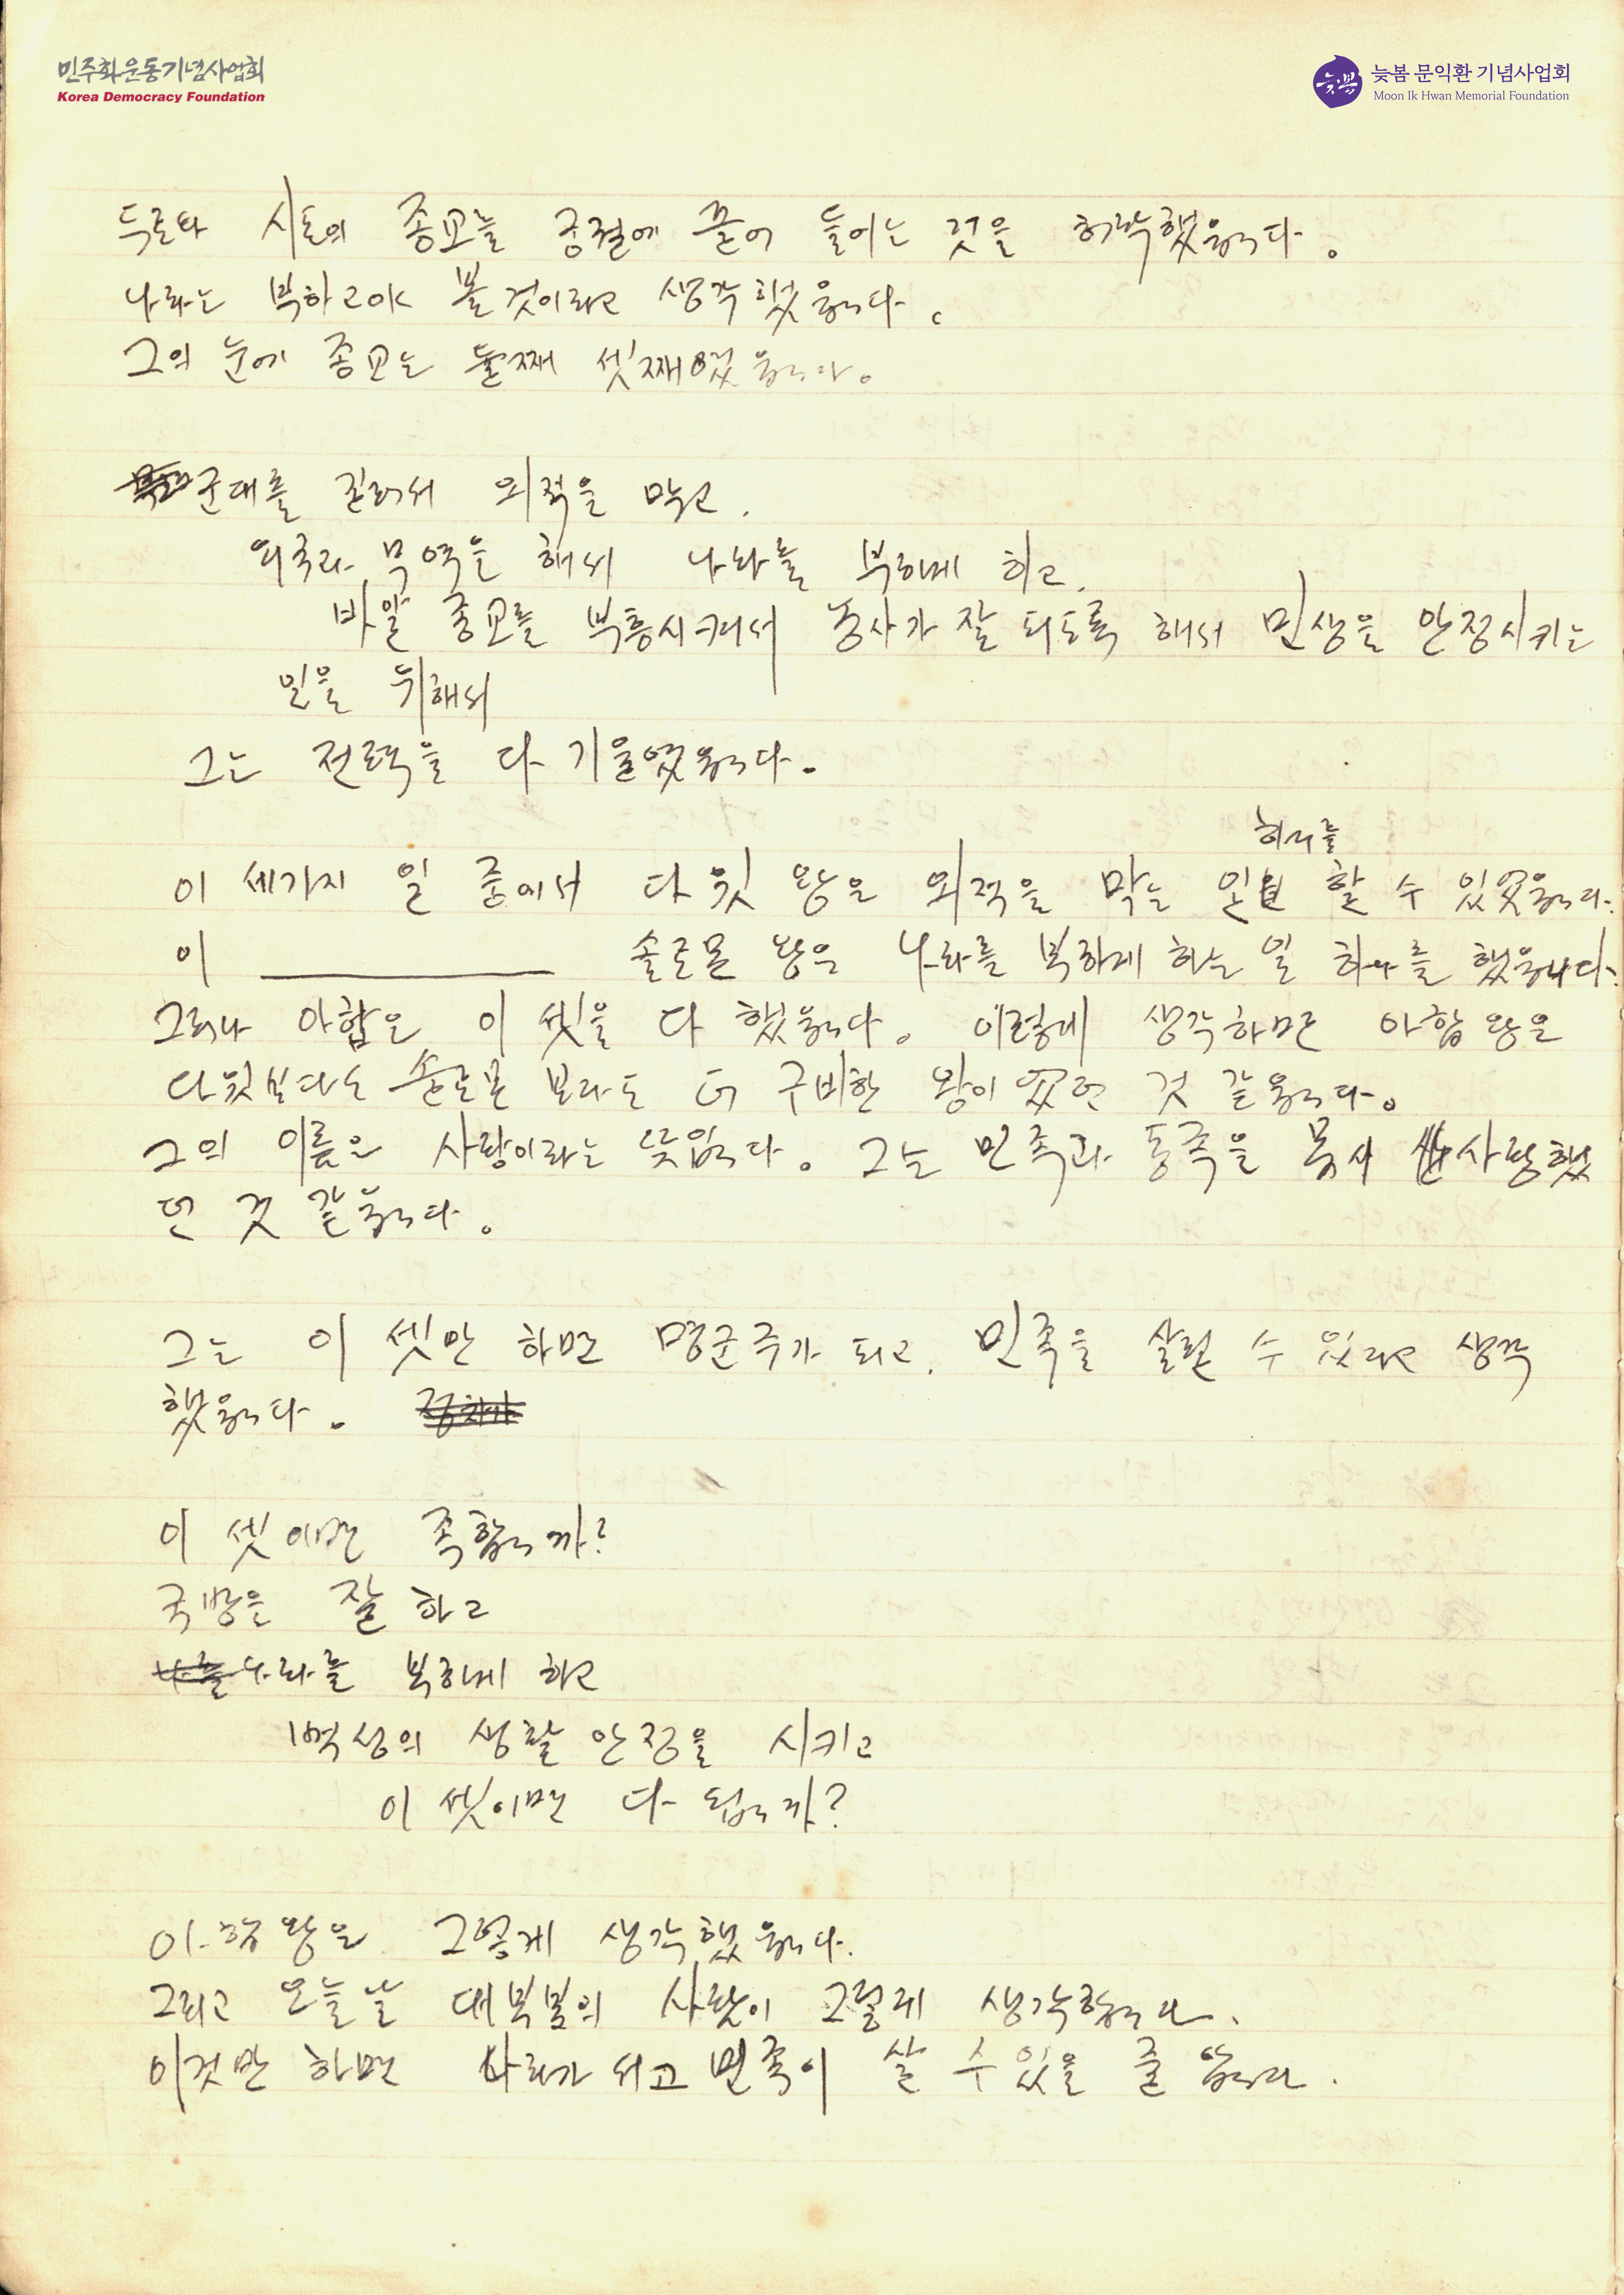 민주화운동기념사업회
Korea Democracy Foundation
늦봄 문익환 기념사업회
Moon Ik Hwan Memorial Foundation
두로와 시돈의 종교를 궁궐에 끌어 들이는 것을 허락했읍니다.
나라는 부하고야 볼 것이라고 생각했읍니다.
그의 눈에 종교는 둘째 셋째였읍니다.
군대를 길러서 외적을 막고,
외국과 무역을 해서 나라를 부하게 하고,
바알 종교를 부흥시켜서 농사가 잘 되도록 해서 민생을 안정시키는
일을 위해서
그는 전력을 다 기울였읍니다.
하나를
이 세가지 일 중에서 다윗 왕은 외적을 막는 일 할 수 있었읍니다.
이 솔로몬 왕은 나라를 부하게 하는 일 하나를 했읍니다.
그러나 아합은 이 셋을 다 했읍니다. 이렇게 생각하면 아합 왕은
다윗보다도 솔로몬 보다도 더 구비한 왕이었던 것 같읍니다.
그의 이름은 사랑이라는 뜻입니다. 그는 민족과 동족을 몹시 사랑했
던 것 같읍니다.
그는 이 셋만 하면 명군주가 되고, 민족을 살릴 수 있다고 생각
했읍니다.
이 셋이면 족합니까?
국방은 잘 하고
나라를 부하게 하고
백성의 생활 안정을 시키고
이 셋이면 다 됩니까?
아합왕은 그렇게 생각했읍니다.
그리고 오늘날 대부분의 사람이 그렇게 생각합니다.
이것만 하면 나라가 서고 민족이 살 수 있을 줄 압니다.